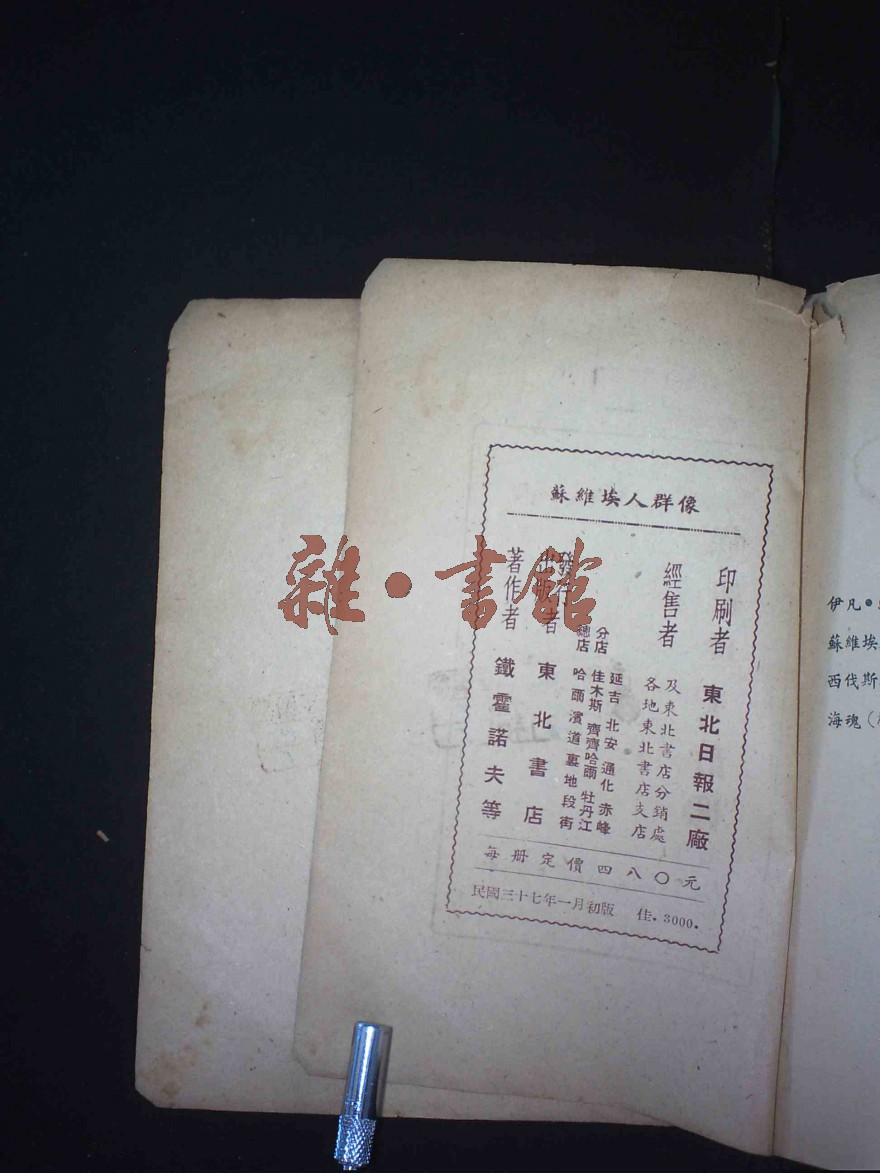 蘇維埃人群像
著作者 鐵霍諾夫等
出版者 東北書店
發行
總店 哈爾濱道裏地段街
分店 佳木斯 齊齊哈爾 牡丹江
延吉 北安 通化 赤峰
經售者 各地東北書店支店
及東北書店分銷處
印刷者 東北日報二廠
每册定價四八〇元
民國三十七年一月初版 佳.3000.
雜·書館
伊凡•
蘇維埃
西伐斯
海魂（